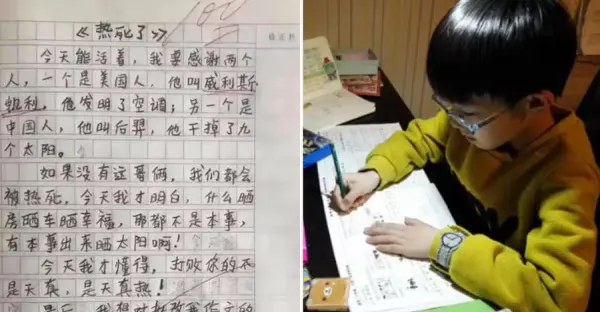 100
《热死了》
今天能活着，我要感谢两个
人，一个是美国人，他叫威利斯
凯利。他发明了空调；另一个是
中国人，他叫后羿，他干掉了九
个太阳。
如果没有这哥俩，我们都会
被热死，今天我才明白，什么晒
房晒车晒幸福，那都不是本事，
有本事出来晒太阳啊！
今天我才懂得，打败你的不
是天真，是天真热！
最后，我想对批改我作文的